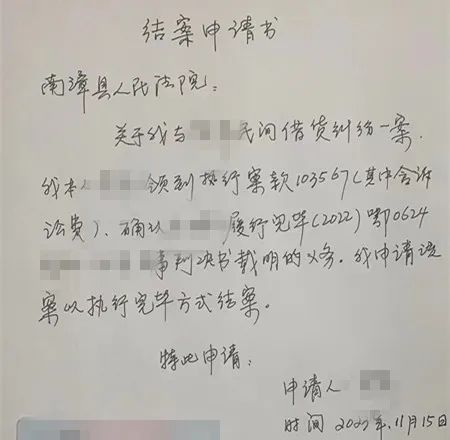 结案申请书
南漳县人民法院:
关于我与 民间借贷纠纷一案,
我本人 领到执行案款103567(其中含诉
讼费)、确认 履行完毕(2022)鄂0624
事判决书载明的义务。我申请该
案以执行完毕方式结案。
特此申请.
申请人
时间 2022年.11月15日